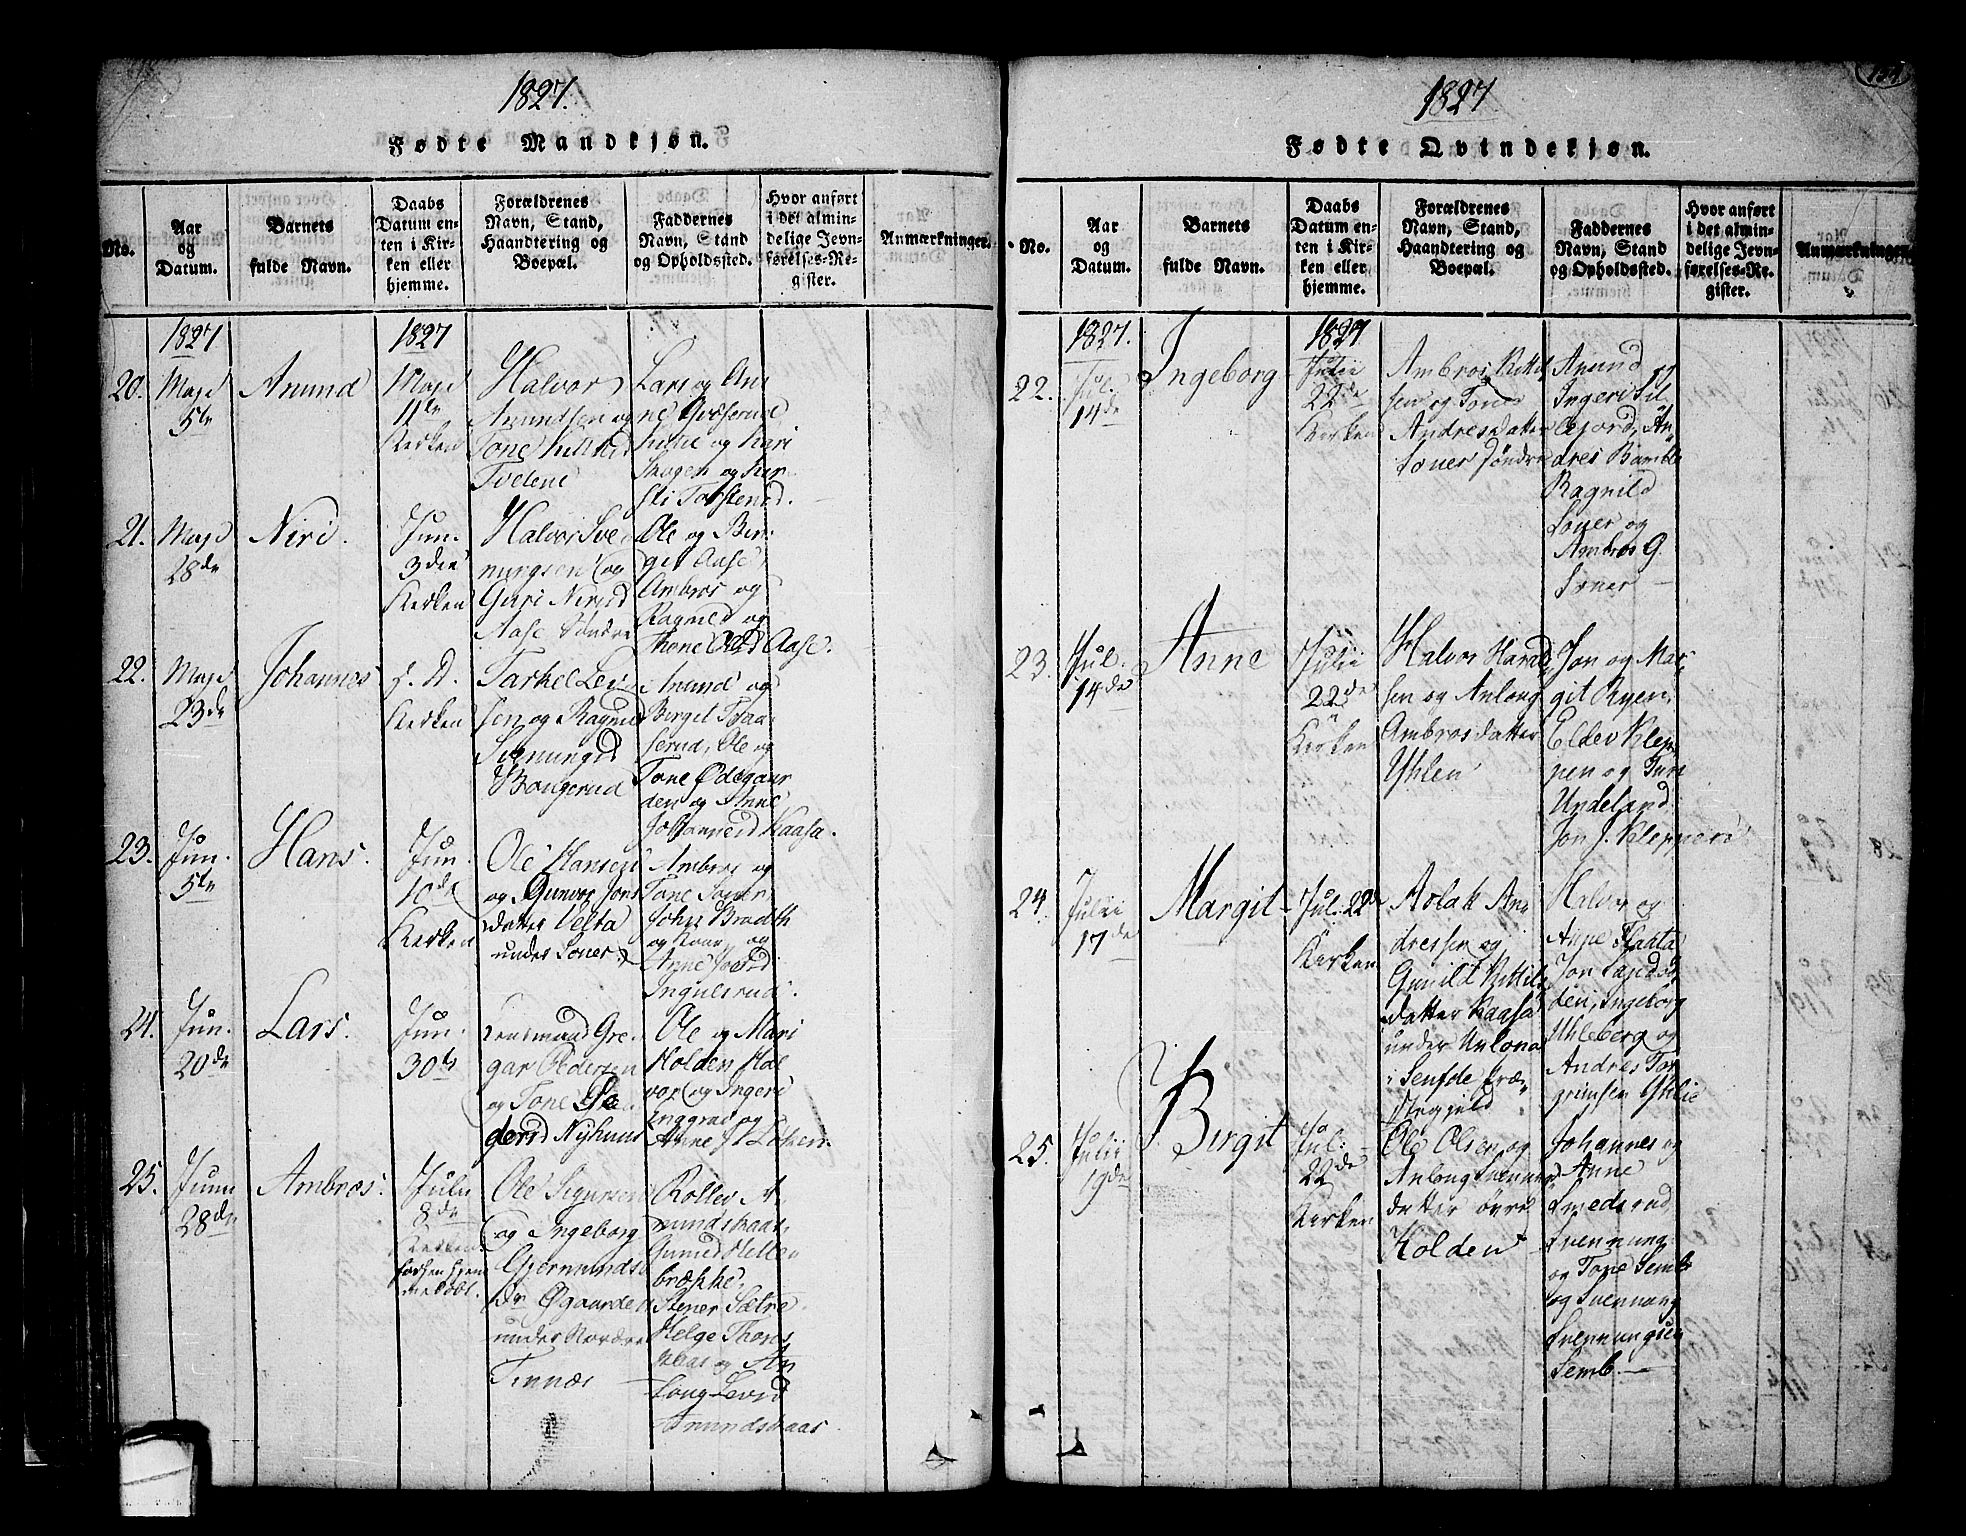 1827.
Fødte Mandkjøn.
No.
Aar
og
Datum.
Barnets
fulde Navn.
Daabs
Datum en-
ten i Kir-
ken eller
hjemme.
Forældrenes
Navn, Stand,
Haandtering og
Boepæl.
Faddernes
Navn, Stand
og Opholdssted.
Hvor anført
i det almin-
delige Jevn-
førelses-Re-
gister.
Anmærkninger.
1827
1827
20.
Maji
5te
Anund
Maji
11te
Kirken
Halvor
Amundsen og
Tone
Tveten
Lars og An
ne
og Kari
Skogen og Kir
sti Torstensd.
21.
Maji
28de
Niri.
Jun.
3die
Kirken
Halvor Sve
nungsen og
Guri Nirisd
Aase Søndre
Ole og Bir
git Aase,
Ambros og
Ragnild og
Thone Olsd Aase.
22.
Maji
23de
Johannes
s. D.
Kirken
Tarkel Lev
sen og Ragnild
Svenungsd
Bongerud
Anund og
Birgit Traa
serud, Ole og
Tone Ødegaar
den og Anne
Johannesd Kaasa.
23.
Jun.
5te
Hans.
Jun.
10de
Kirken
Ole Hansen
og Gunvor Jons
datter Velta
under Soner.
Ambros og
Tone Soner
John Bradth
og Roar og
Anne
Ingulsrud.
24.
Jun.
20de
Lars.
Jun.
30te
Lensmand Gre
gar Pedersen
og Tone
Nyhuus
Ole og Mari
Holden Hal
vor og Ingeri
Enggrav og
Anne
25.
Junii
28de
Ambros.
Julii
8de
Kirken
Ole Sigursen
og Ingeborg
Gjermunds
Dr Øgaarden
under Nordre
Tinnæs
Rollev A
mundskaas,
Gunild Helle
brække.
Stener Sætre
Helge Thons
kaas og An
laug Levsd
Amundskaas
1827
Fødte Qvindekjøn.
No.
Aar
og
Datum.
Barnets
fulde Navn.
Daabs
Datum en-
ten i Kir-
ken eller
hjemme.
Forældrenes
Navn, Stand,
Haandtering og
Boepæl.
Faddernes
Navn, Stand
og Opholdssted.
Hvor anført
i det almin-
delige Jevn-
førelses-Re-
gister.
Anmærkninger.
1827.
1827
22.
Jul.
14de
Ingeborg
Julii
22de
Kirken
Ambros Kittil
sen og Tone
Andresdatter
Soner Søndre
Anund
Ingeri Sil
lejord, An
dres Bamble
Ragnild
Soner og
Ambros G.
Soner
23.
Jul.
14de
Anne
Julii
22de
Kirken
Halvor Harald
sen og Anlong
Ambrosdatter
Yhlen
Jon og Mar
git Ryen,
Eldev Klep
pen og Turi
Undeland.
Jon J. Kleppen
24.
Julii
17de
Margit
Jul: 22de
Kirken
Aslak An
dressen og
Gunild Kittils
datter Kaasa
under
i Senfde Præ
stegjeld
Halvor og
Anne Flaata
Jon
den, Ingeborg
Uhleberg og
Andres Tor
grimsen Yhlie
25.
Julii
19de
Birgit
Jul:
22de
Kirken
Ole Olsen og
Anlong Svennungs
datter øvre
Holden
Johannes og
Anne
Smedsrud,
Svennung
og Tone Semb
og Svennung
Svennungsen
Semb.